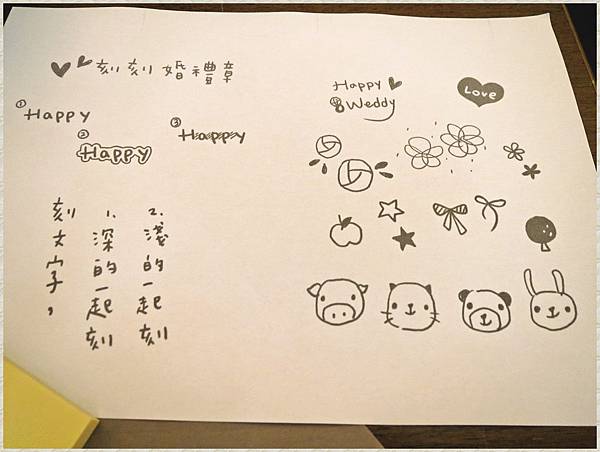 刻刻婚禮章
① Happy
② Happy
③ Happy
刻文字,
1. 深的一起刻
2. 淺的一起刻
Happy
Weddy
Love